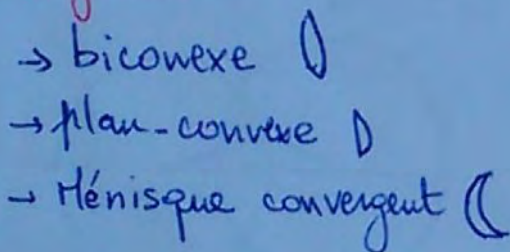 → biconvexe
→ plan-convexe
→ Ménisque convergent